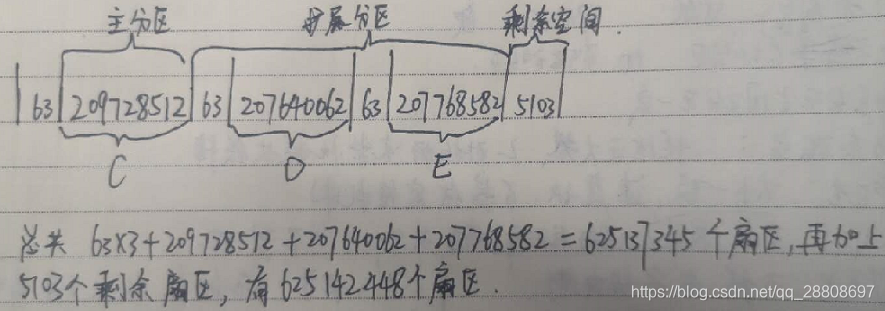 主分区 扩展分区 剩余空间.
63 209728512 63 207640062 63 207768582 5103
C D E
总共 63×3+209728512+207640062+207768582=625137345 个扇区,再加上
5103个剩余扇区, 有625142448个扇区.
https://blog.csdn.net/qq_28808697